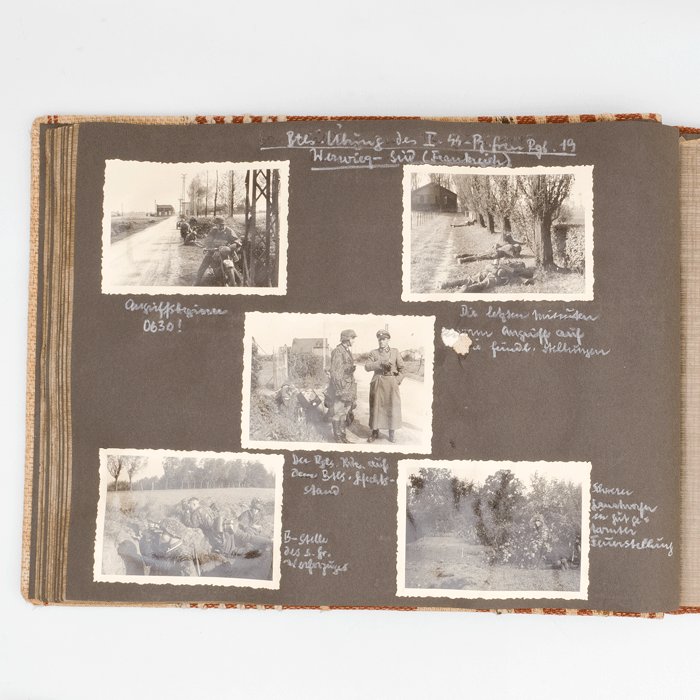 Btls. Übung des I. SS-Pz. Gren. Rgt. 19
Werwieg-Süd (Frankreich)
Angriffsbeginn
0630!
Die letzten Minuten
vorm Angriff auf
die feindl. Stellungen
Der Rgts. Kdr. auf
dem Btls. Gefechts-
stand
B-Stelle
des s. Gr.
Werferzuges
Schwerer
Granatwerfer
in gut ge-
tarnter
Feuerstellung